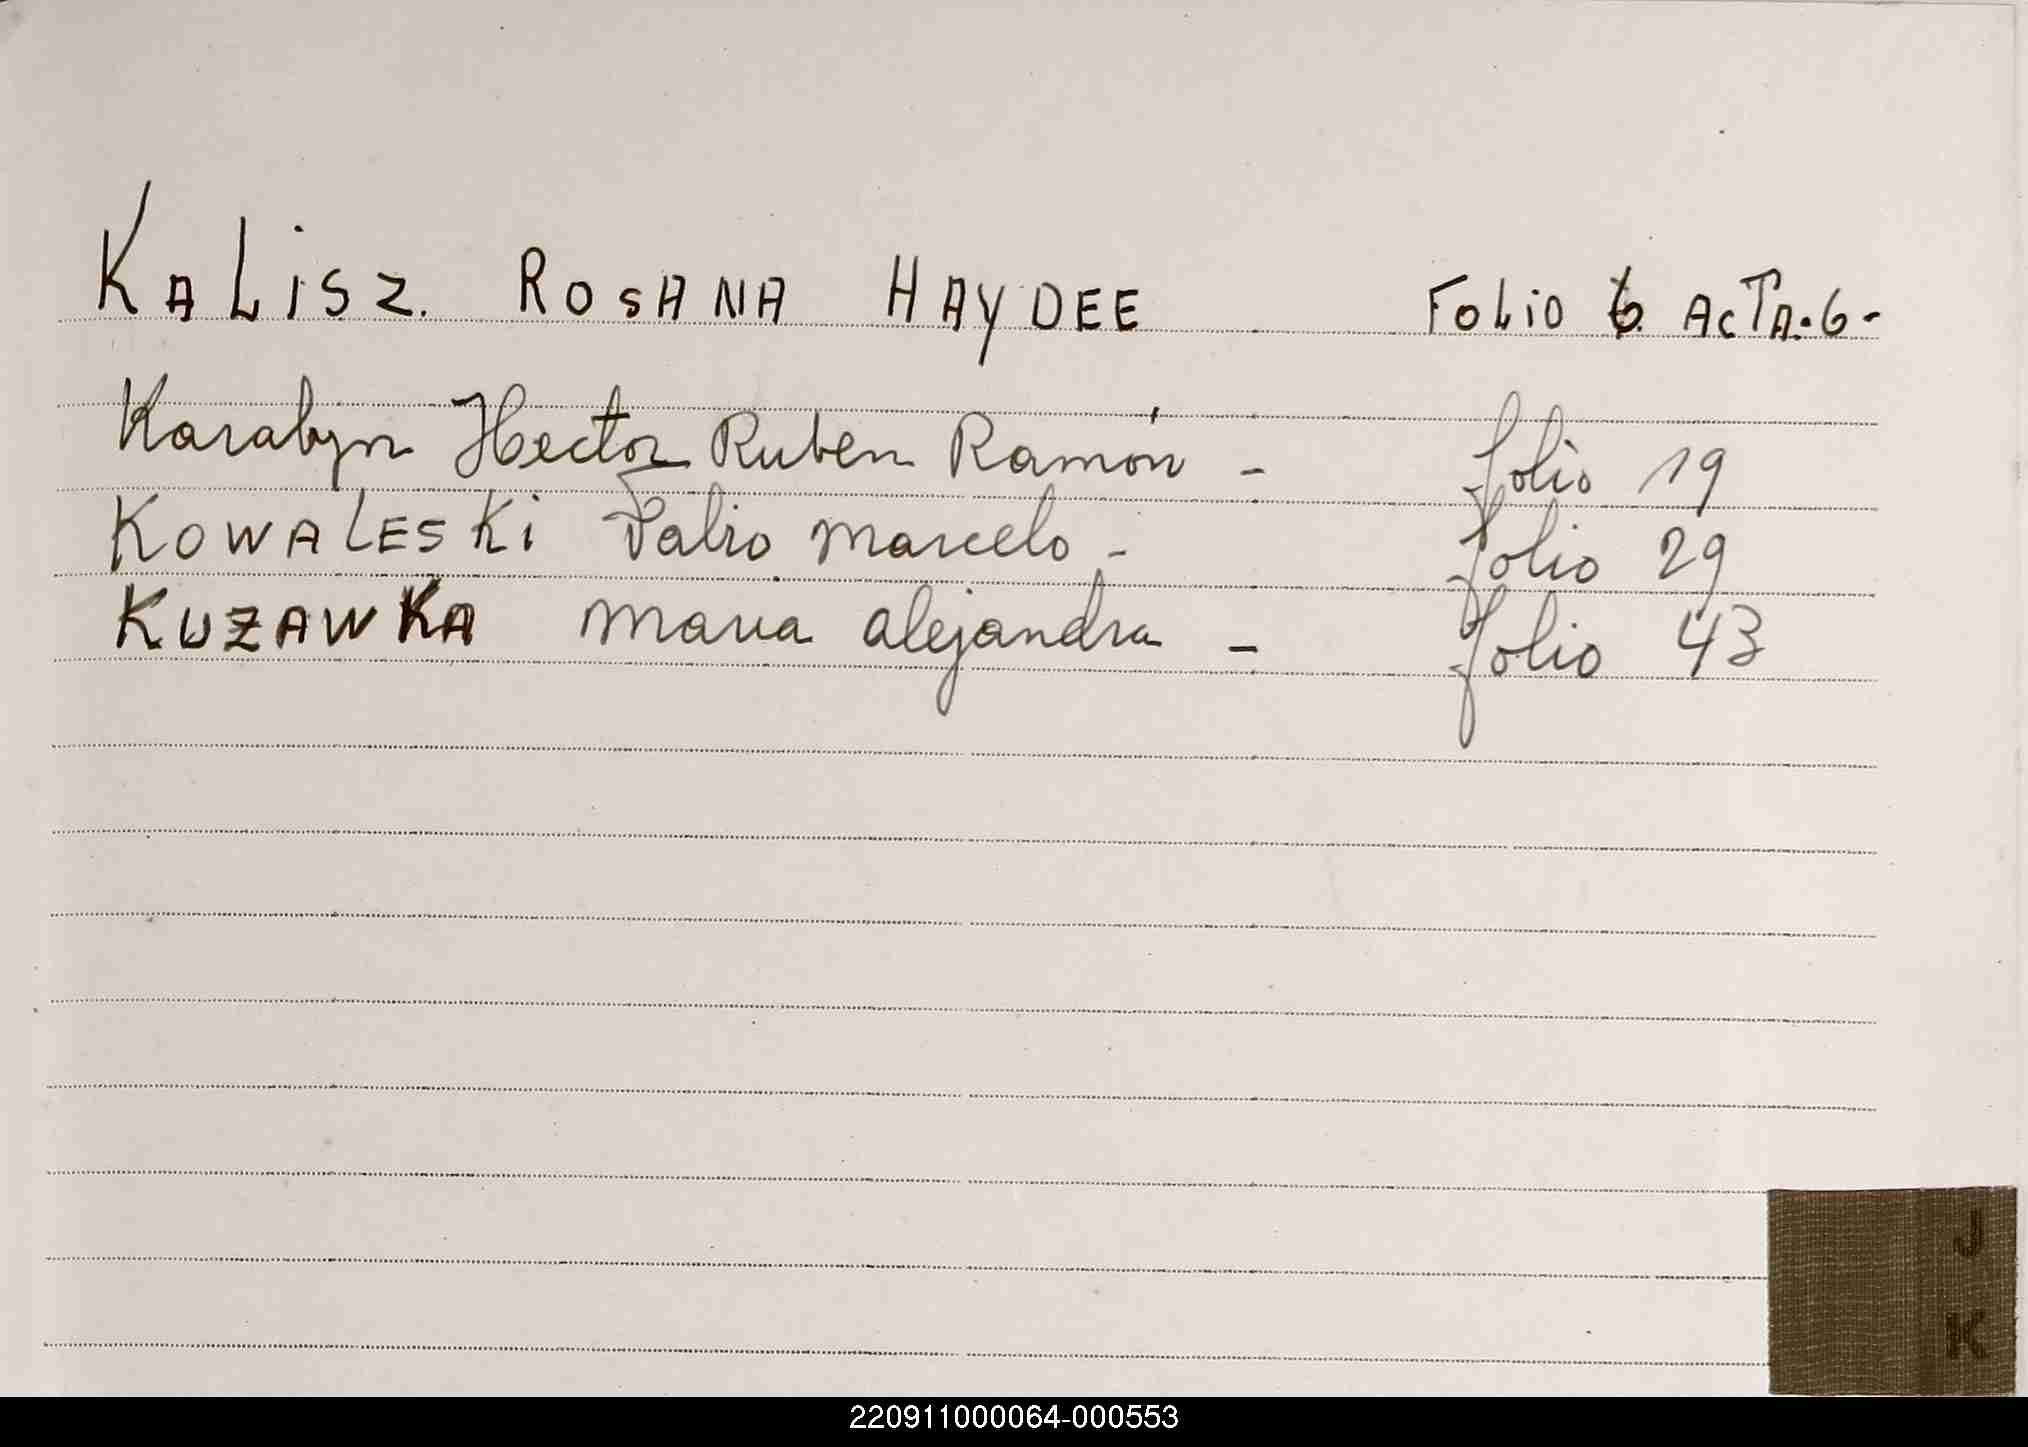 KALISZ. ROSANA HAYDEE FOLIO 6 ACTA.6-
Karabyn Hector Ruben Ramón - folio 19
KOWALESKI Fabio Marcelo - folio 29
KUZAWKA Maria Alejandra - folio 43
J
K
220911000064-000553